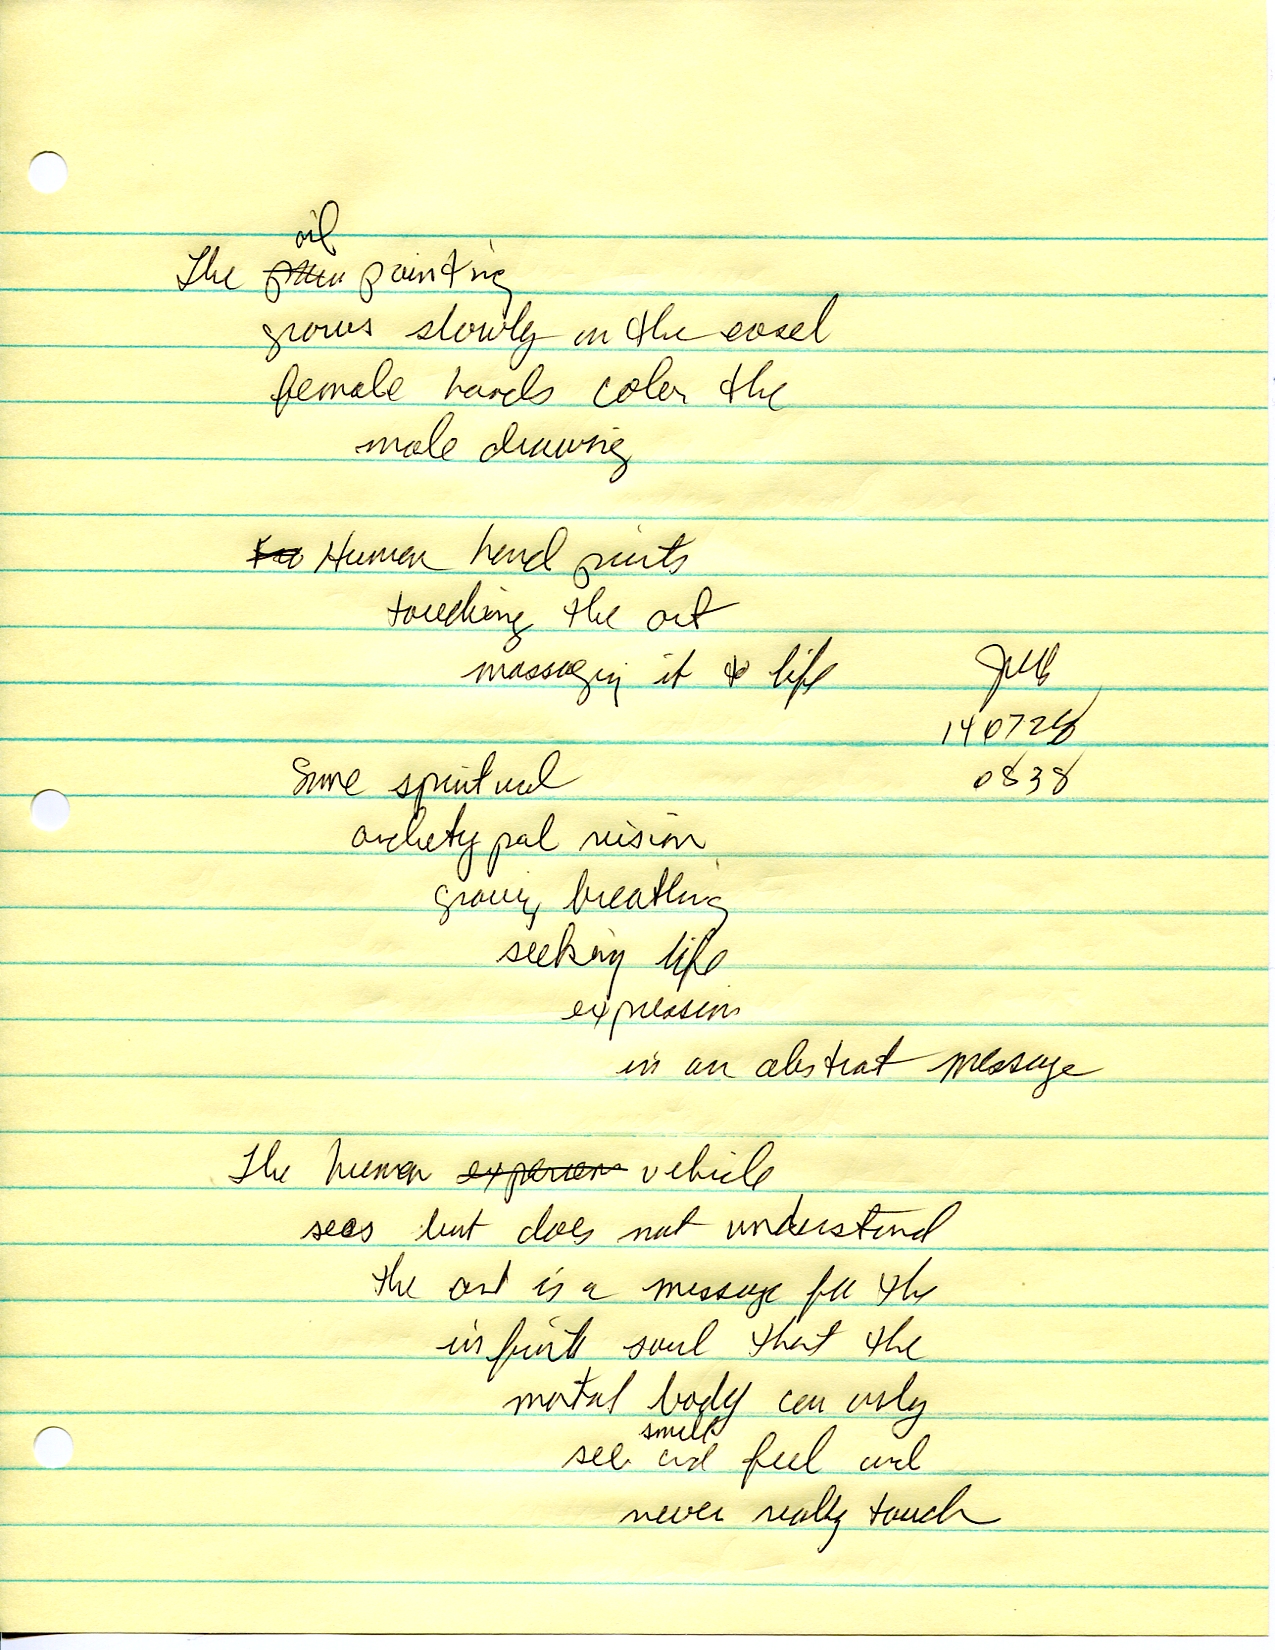 oil
The painting
grows slowly on the easel
female hands color the
male drawing
Human hand paints
touching the art
massaging it to life
140728
0838
Some spiritual
archetypal vision
growing breathing
seeking life
expression
in an abstract message
The human experien vehicle
sees but does not understand
the art is a message for the
infinite soul that the
mortal body can only
smell
see and feel and
never really touch